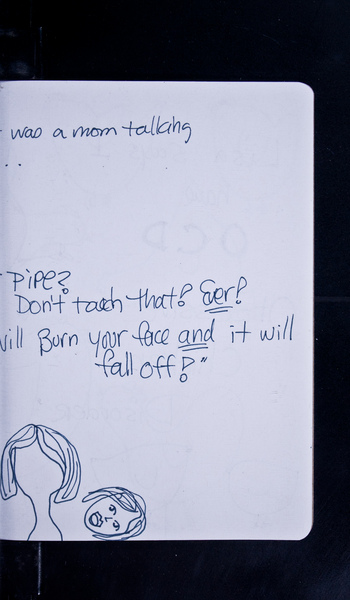 was a mom talking
..
Pipe?
Don't touch that? Ever?
will Burn your face and it will
fall off?"